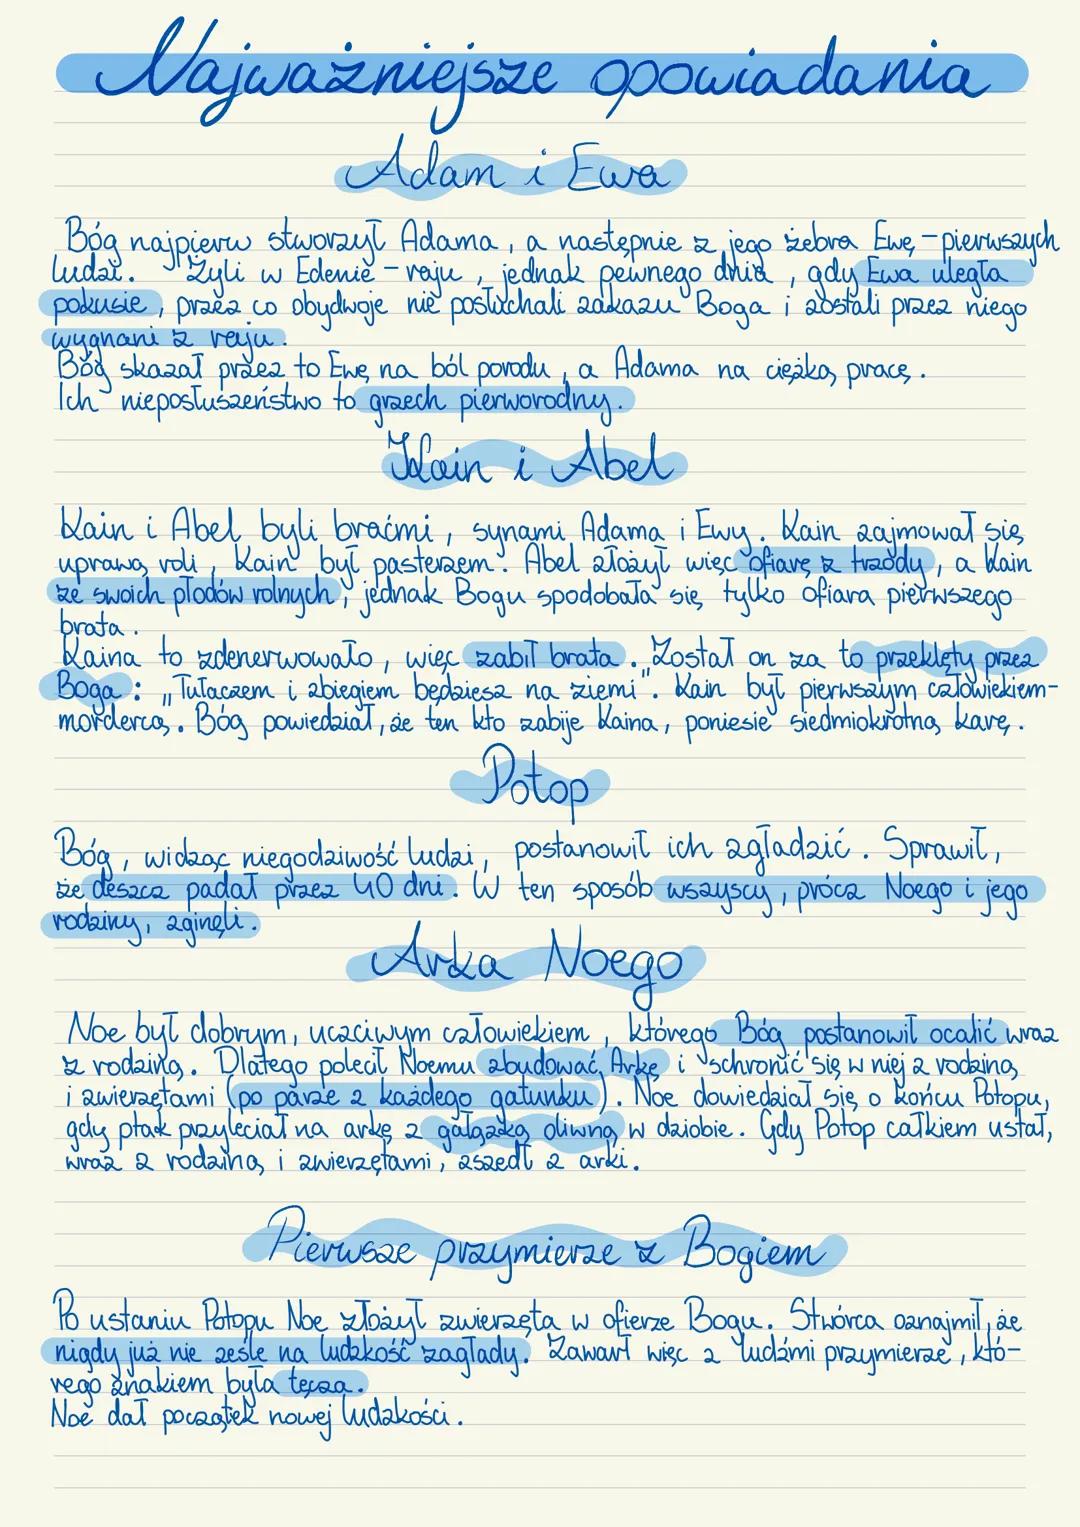 Najważniejsze opowiadania
Adam i Ewa
Bóg najpierw stworzył Adama, a następnie z jego żebra Ewę - pierwszych
ludzi. Żyli w Edenie - raju, jednak pewnego dnia, gdy Ewa uległa
pokusie, przez co obydwoje nie posłuchali zakazu Boga i zostali przez niego
wygnani z raju.
Bóg skazał przez to Ewę na ból porodu, a Adama na ciężką pracę.
Ich nieposłuszeństwo to grzech pierworodny.
Kain i Abel
Kain i Abel byli braćmi, synami Adama i Ewy. Kain zajmował się
uprawą roli, Kain był pasterzem. Abel złożył więc ofiarę z trzody, a Kain
ze swoich płodów rolnych, jednak Bogu spodobała się tylko ofiara pierwszego
brata.
Kaina to zdenerwowało, więc zabił brata. Został on za to przeklęty przez
Boga: „Tułaczem i zbiegiem będziesz na ziemi". Kain był pierwszym człowiekiem-
mordercą. Bóg powiedział, że ten kto zabije Kaina, poniesie siedmiokrotną karę.
Potop
Bóg, widząc niegodziwość ludzi, postanowił ich zgładzić. Sprawił,
że deszcz padał przez 40 dni. W ten sposób wszyscy, prócz Noego i jego
rodziny, zginęli.
Arka Noego
Noe był dobrym, uczciwym człowiekiem, którego Bóg postanowił ocalić wraz
z rodziną. Dlatego polecił Noemu zbudować Arkę i schronić się w niej z rodziną
i zwierzętami (po parze z każdego gatunku). Noe dowiedział się o końcu Potopu,
gdy ptak przyleciał na arkę z gałązką oliwną w dziobie. Gdy Potop całkiem ustał,
wraz z rodziną i zwierzętami, zszedł z arki.
Pierwsze przymierze z Bogiem
Po ustaniu Potopu Noe złożył zwierzęta w ofierze Bogu. Stwórca oznajmił, że
nigdy już nie ześle na ludzkość zagłady. Zawarł więc z ludźmi przymierze, któ-
rego znakiem była tęcza.
Noe dał początek nowej ludzkości.